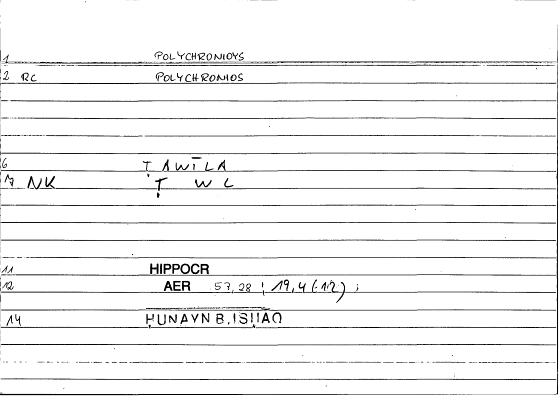 1 POLYCHRONIOYS
2 RC POLYCHRONIOS
6 ṬAWĪLA
7 NK Ṭ W L
11 HIPPOCR
12 AER 57,28 ; 19,4 (-12) ;
14 ḤUNAYN B. ISḤAQ